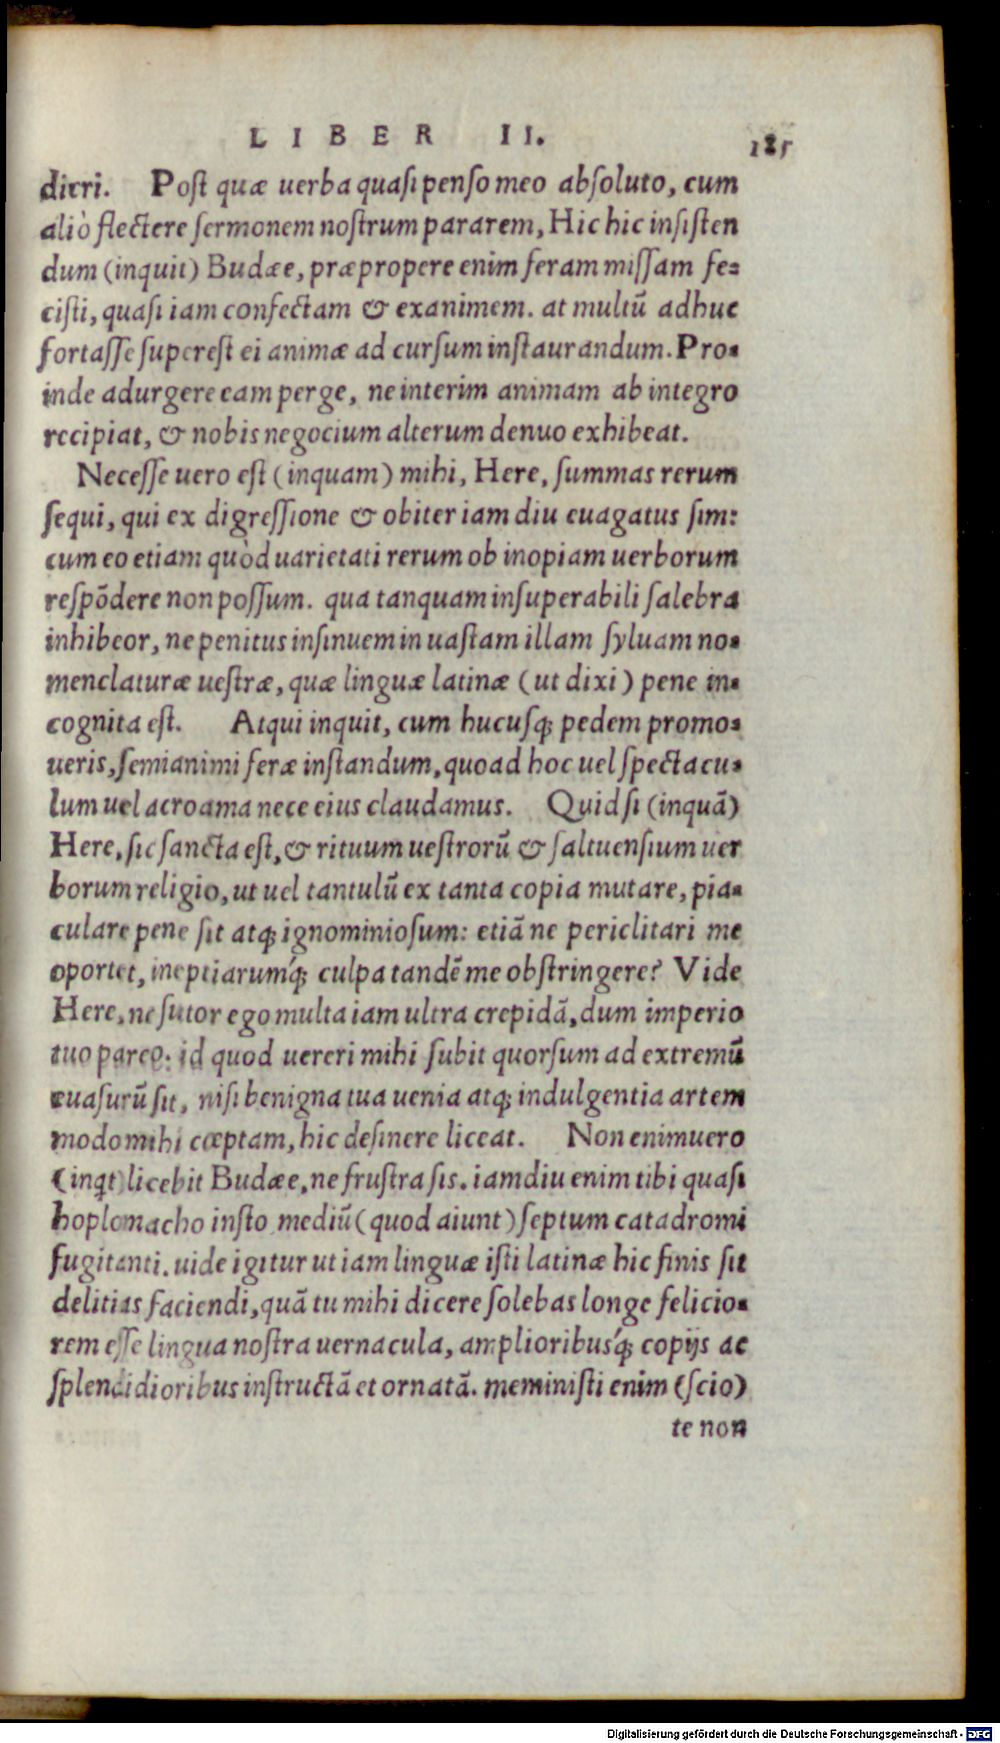 LIBER II. 185
dicri. Poſt quæ uerba quaſi penſo meo abſoluto, cum
aliò flectere ſermonem noſtrum pararem, Hic hic inſiſten
dum (inquit) Budæe, præpropere enim feram miſſam fe=
ciſti, quaſi iam confectam & exanimem. at multū adhuc
fortaſſe ſupereſt ei animæ ad curſum inſtaurandum. Pro=
inde adurgere eam perge, ne interim animam ab integro
recipiat, & nobis negocium alterum denuo exhibeat.
Neceſſe uero eſt (inquam) mihi, Here, ſummas rerum
ſequi, qui ex digreſſione & obiter iam diu euagatus ſim:
cum eo etiam quòd uarietati rerum ob inopiam uerborum
reſpōdere non poſſum. qua tanquam inſuperabili ſalebra
inhibeor, ne penitus inſinuem in uaſtam illam ſyluam no=
menclaturæ ueſtræ, quæ linguæ latinæ (ut dixi) pene in=
cognita eſt. Atqui inquit, cum hucuſq; pedem promo=
ueris, ſemianimi feræ inſtandum, quoad hoc uel ſpectacu=
lum uel acroama nece eius claudamus. Quid ſi (inquā)
Here, ſic ſancta eſt, & rituum ueſtrorū & ſaltuenſium uer
borum religio, ut uel tantulū ex tanta copia mutare, pia=
culare pene ſit atq; ignominioſum: etiā ne periclitari me
oportet, ineptiarumq́; culpa tandē me obſtringere? Vide
Here, ne ſutor ego multa iam ultra crepidā, dum imperio
tuo pareo: id quod uereri mihi ſubit quorſum ad extremū
euaſurū ſit, niſi benigna tua uenia atq; indulgentia artem
modo mihi cœptam, hic deſinere liceat. Non enimuero
(inqt) licebit Budæe, ne fruſtra ſis. iamdiu enim tibi quaſi
hoplomacho inſto mediū (quod aiunt) ſeptum catadromi
fugitanti. uide igitur ut iam linguæ iſti latinæ hic finis ſit
delitias faciendi, quā tu mihi dicere ſolebas longe felicio=
rem eſſe lingua noſtra uernacula, amplioribuſq́; copijs ac
ſplendidioribus inſtructā et ornatā. meminiſti enim (ſcio)
te non
Digitalisierung gefördert durch die Deutsche Forschungsgemeinschaft - DFG